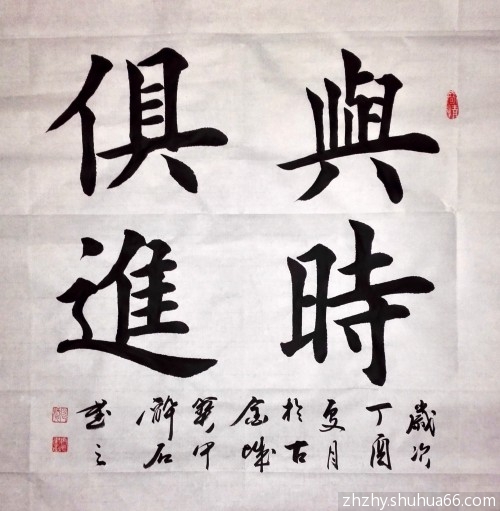 與時
俱進
歲次
丁酉
夏月
於古
金城
醉石
書之
zhzhy.shuhua66.com